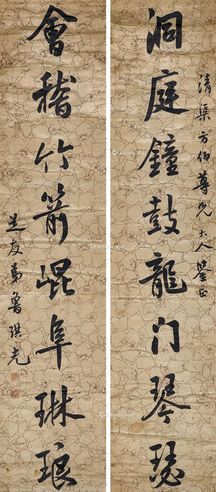 洞庭鐘鼓龍门琴瑟
清渠方伯尊兄大人鑒正
會稽竹箭崐阜琳琅
芝友弟魯琪光